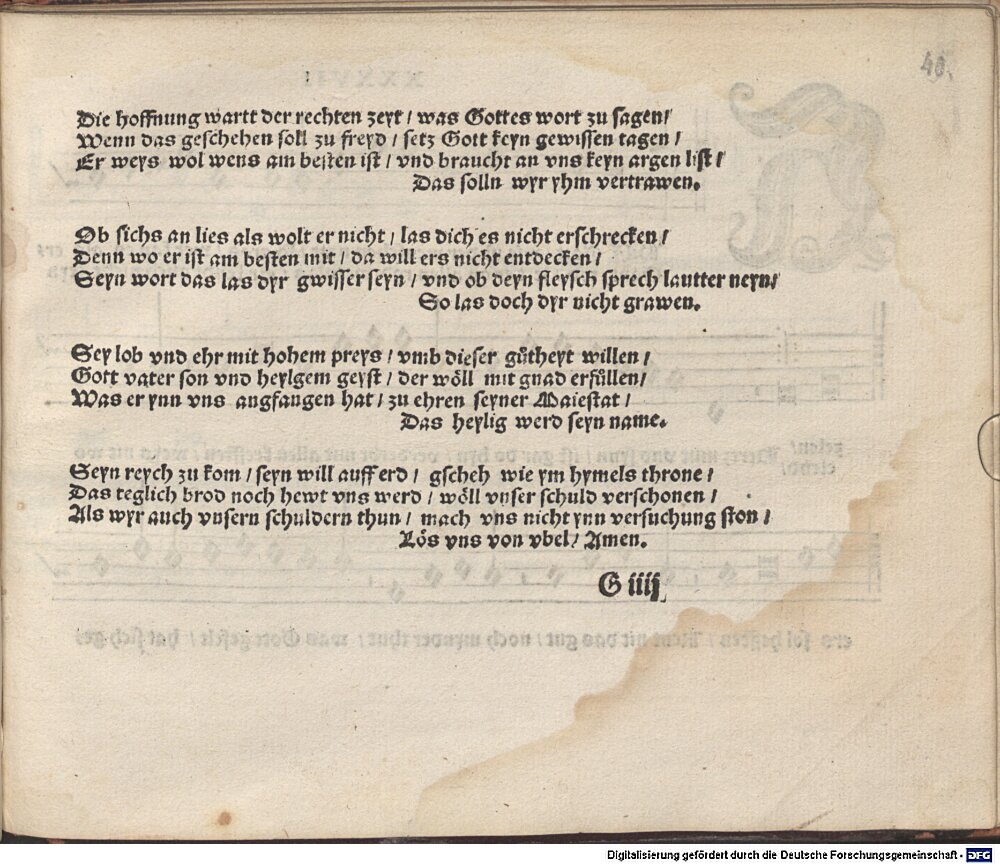 40.
Die hoffnung wartt der rechten zeyt / was Gottes wort zu sagen /
Wenn das geschehen soll zu freyd / setz Gott keyn gewissen tagen /
Er weys wol wens am besten ist / vnd braucht an vns keyn argen list /
Das solln wyr yhm vertrawen.
Ob sichs an lies als wolt er nicht / las dich es nicht erschrecken /
Denn wo er ist am besten mit / da will ers nicht entdecken /
Seyn wort das las dyr gwisser seyn / vnd ob deyn fleysch sprech lautter neyn /
So las doch dyr nicht grawen.
Sey lob vnd ehr mit hohem preys / vmb dieser gütheyt willen /
Gott vater son vnd heylgem geyst / der wöll mit gnad erfüllen /
Was er ynn vns angfangen hat / zu ehren seyner Maiestat /
Das heylig werd seyn name.
Seyn reych zu kom / seyn will auff erd / gscheh wie ym hymels throne /
Das teglich brod noch hewt vns werd / wöll vnser schuld verschonen /
Als wyr auch vnsern schuldern thun / mach vns nicht ynn versuchung ston /
Lös vns von vbel / Amen.
G iiij
Digitalisierung gefördert durch die Deutsche Forschungsgemeinschaft - DFG